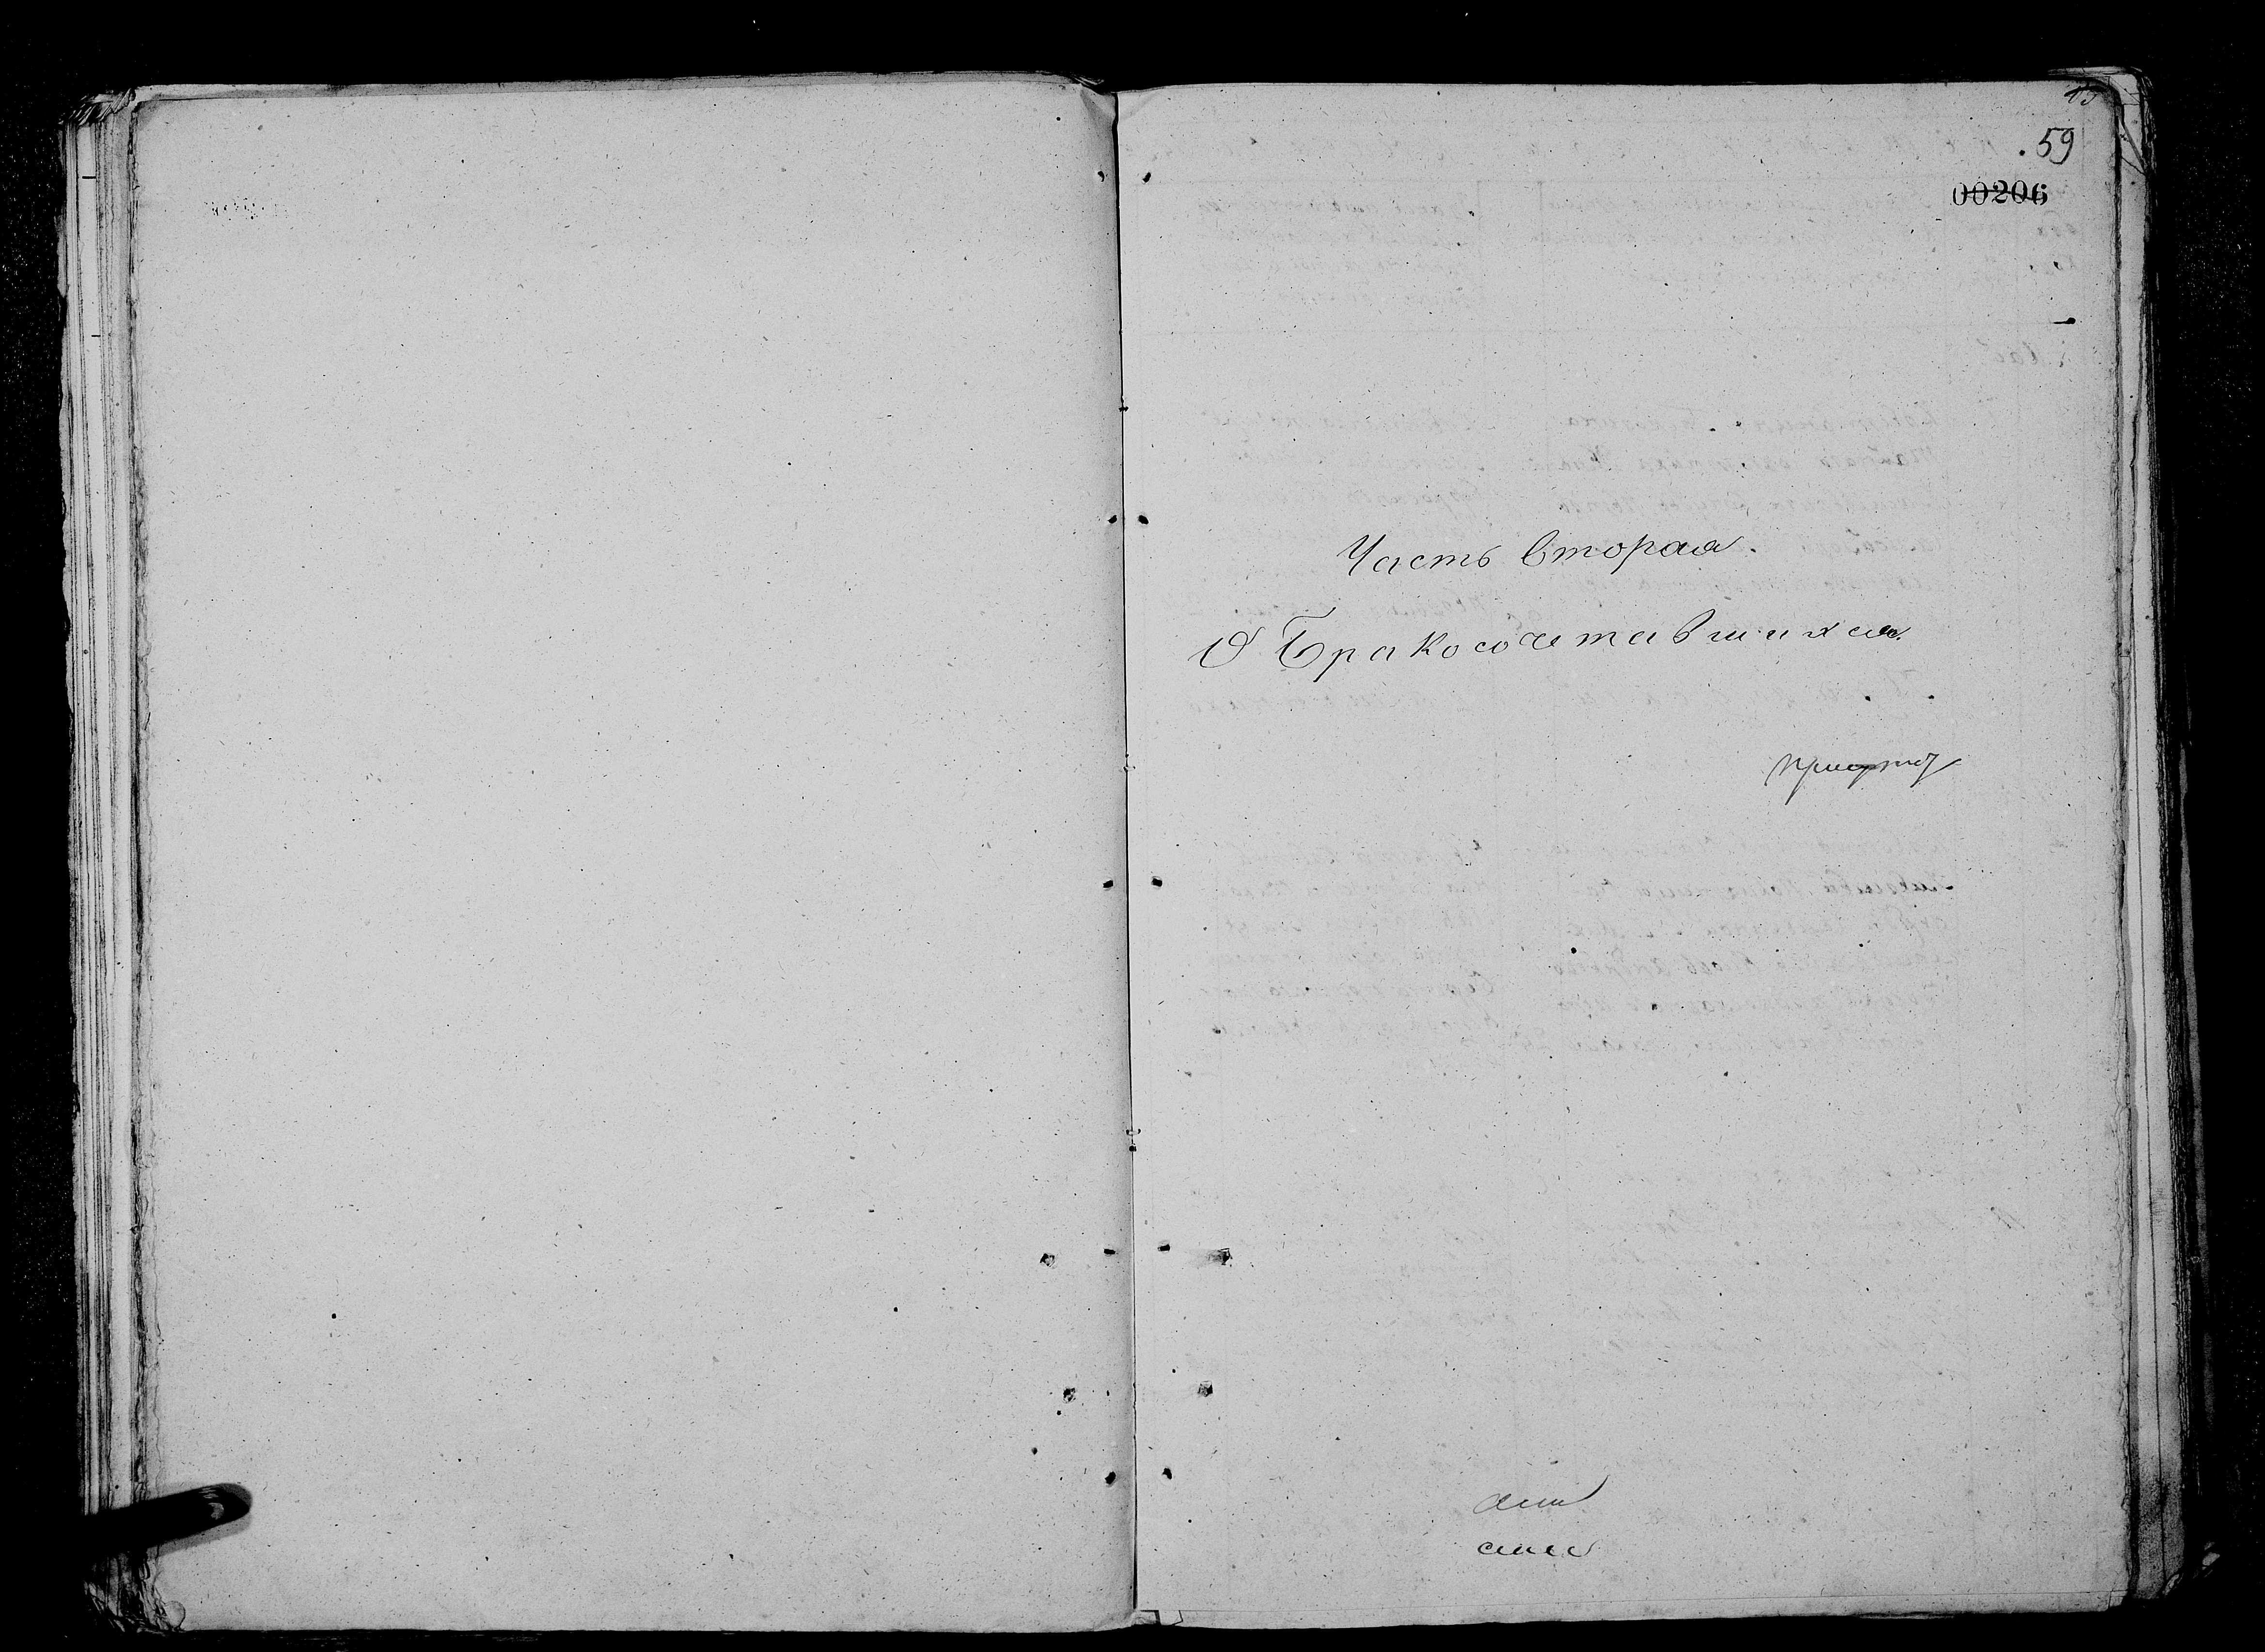 59
00206
Часть вторая.
О Бракосочетавшихся.